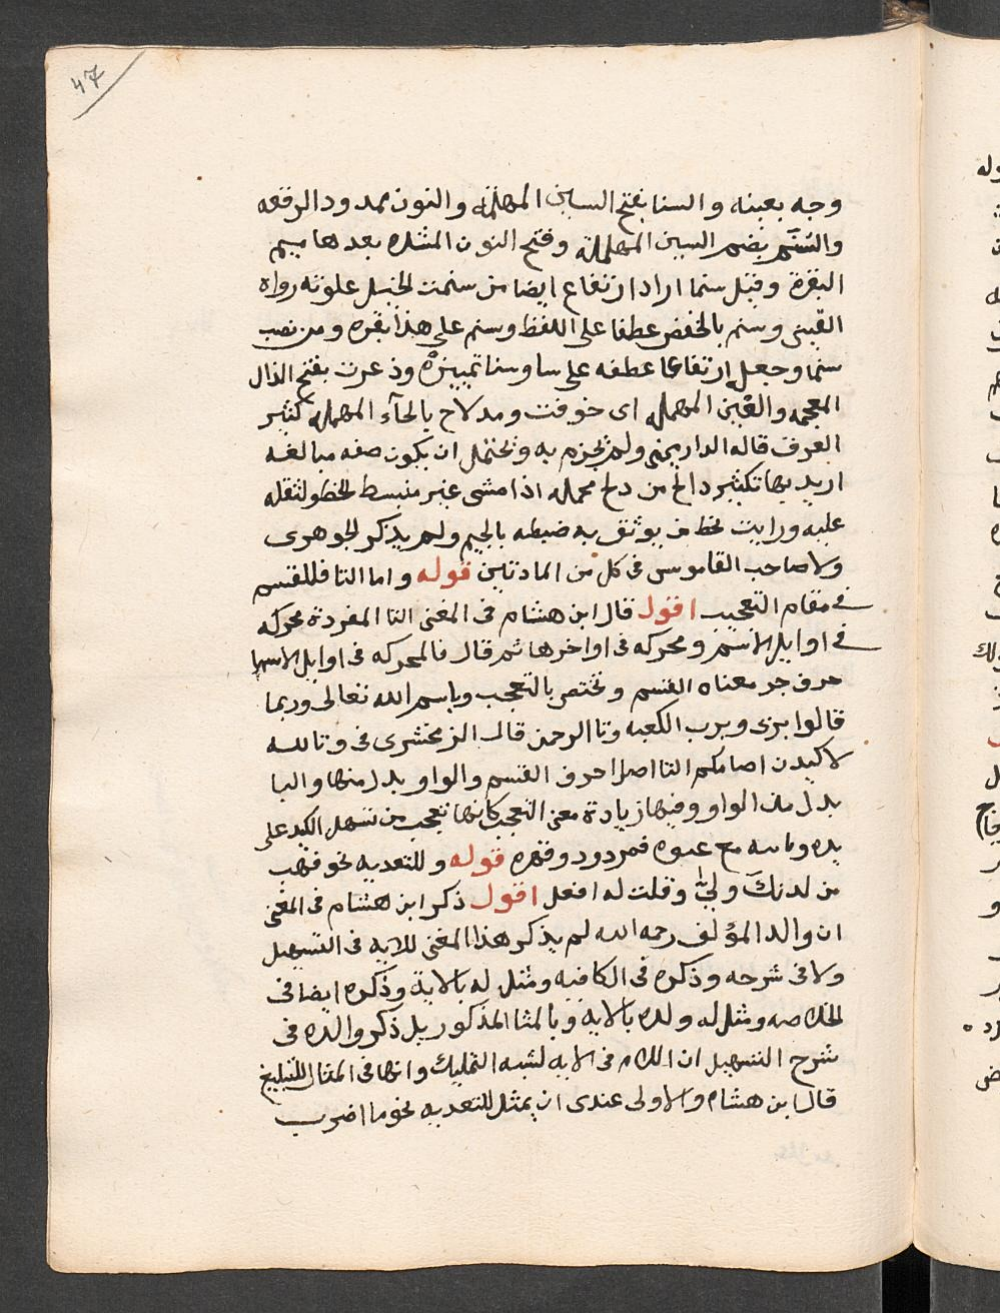 47
وجه بعينه والسنا بفتح السين المهملة والنون ممدود الرفعه
والسُنّم بضم السين المهملة وفتح النون المشدده بعدها ميم
البقرة وقيل سنما اراد ارتفاع ايضا من سنمت الجبل علوته رواه
القيني وسنم بالخفض عطفا على اللفظ وسنم على هذا بقره ومن نصب
سنما وجعل ارتفاعا عطفه على سا وسنا تمييزه وذعرت بفتح الذال
المعجمه والعين المهمله اى خوفت ومدلاح بالحآء المهمله كثير
العرف قاله الدارىمنى ولم يجزم به ويحتمل ان يكون صفه مبالغه
اريد بها تكثير دالح من دلح بمهمله اذا مشى غير منبسط الخطو لثقله
عليه ورايت بخط من يوثق به ضبطه بالجيم ولم يذكر الجوهرى
ولا صاحب القاموس فى كل من المادتين قوله واما التا فللقسم
فى مقام التعجيب اقول قال ابن هشام فى المغنى التا المفردة محركه
فى اوايل الاسم ومحركه فى اواخرها ثم قال فالمحركه فى اوايل الاسما
حرف جر معناه القسم وتختص بالتعجب وباسم الله تعالى وربما
قالوا تربى وبرب الكعبه وتا الرحمن قال الزمخشرى فى وتالله
لاكيدن اصنامكم التا اصل احرف القسم والواو بدل منها والبا
بدل من الواو وفيها زيادة معنى التعجب كانها تعجب من تسهل الكيد على
يده وتاتيه مع عتوه نمرود وقهره قوله وللتعديه نحو فهب
من لدنك وليًّا وقلت له افعل اقول ذكر ابن هشام فى المغنى
ان والد المؤلف رحمه الله لم يذكر هذا المغنى للايه فى التسهيل
ولا فى شرحه وذكره فى الكافيه ومثل له بالاية وذكره ايضا فى
الخلاصه ومثل له ولده بالايه وبالمثا المذكور بل ذكر والده فى
شرح التسهيل ان اللام فى الايه لشبه التمليك وانها فى المثال للتبليغ
قال ابن هشام والاولى عندى ان يمثل للتعديه نحو ما اضرب